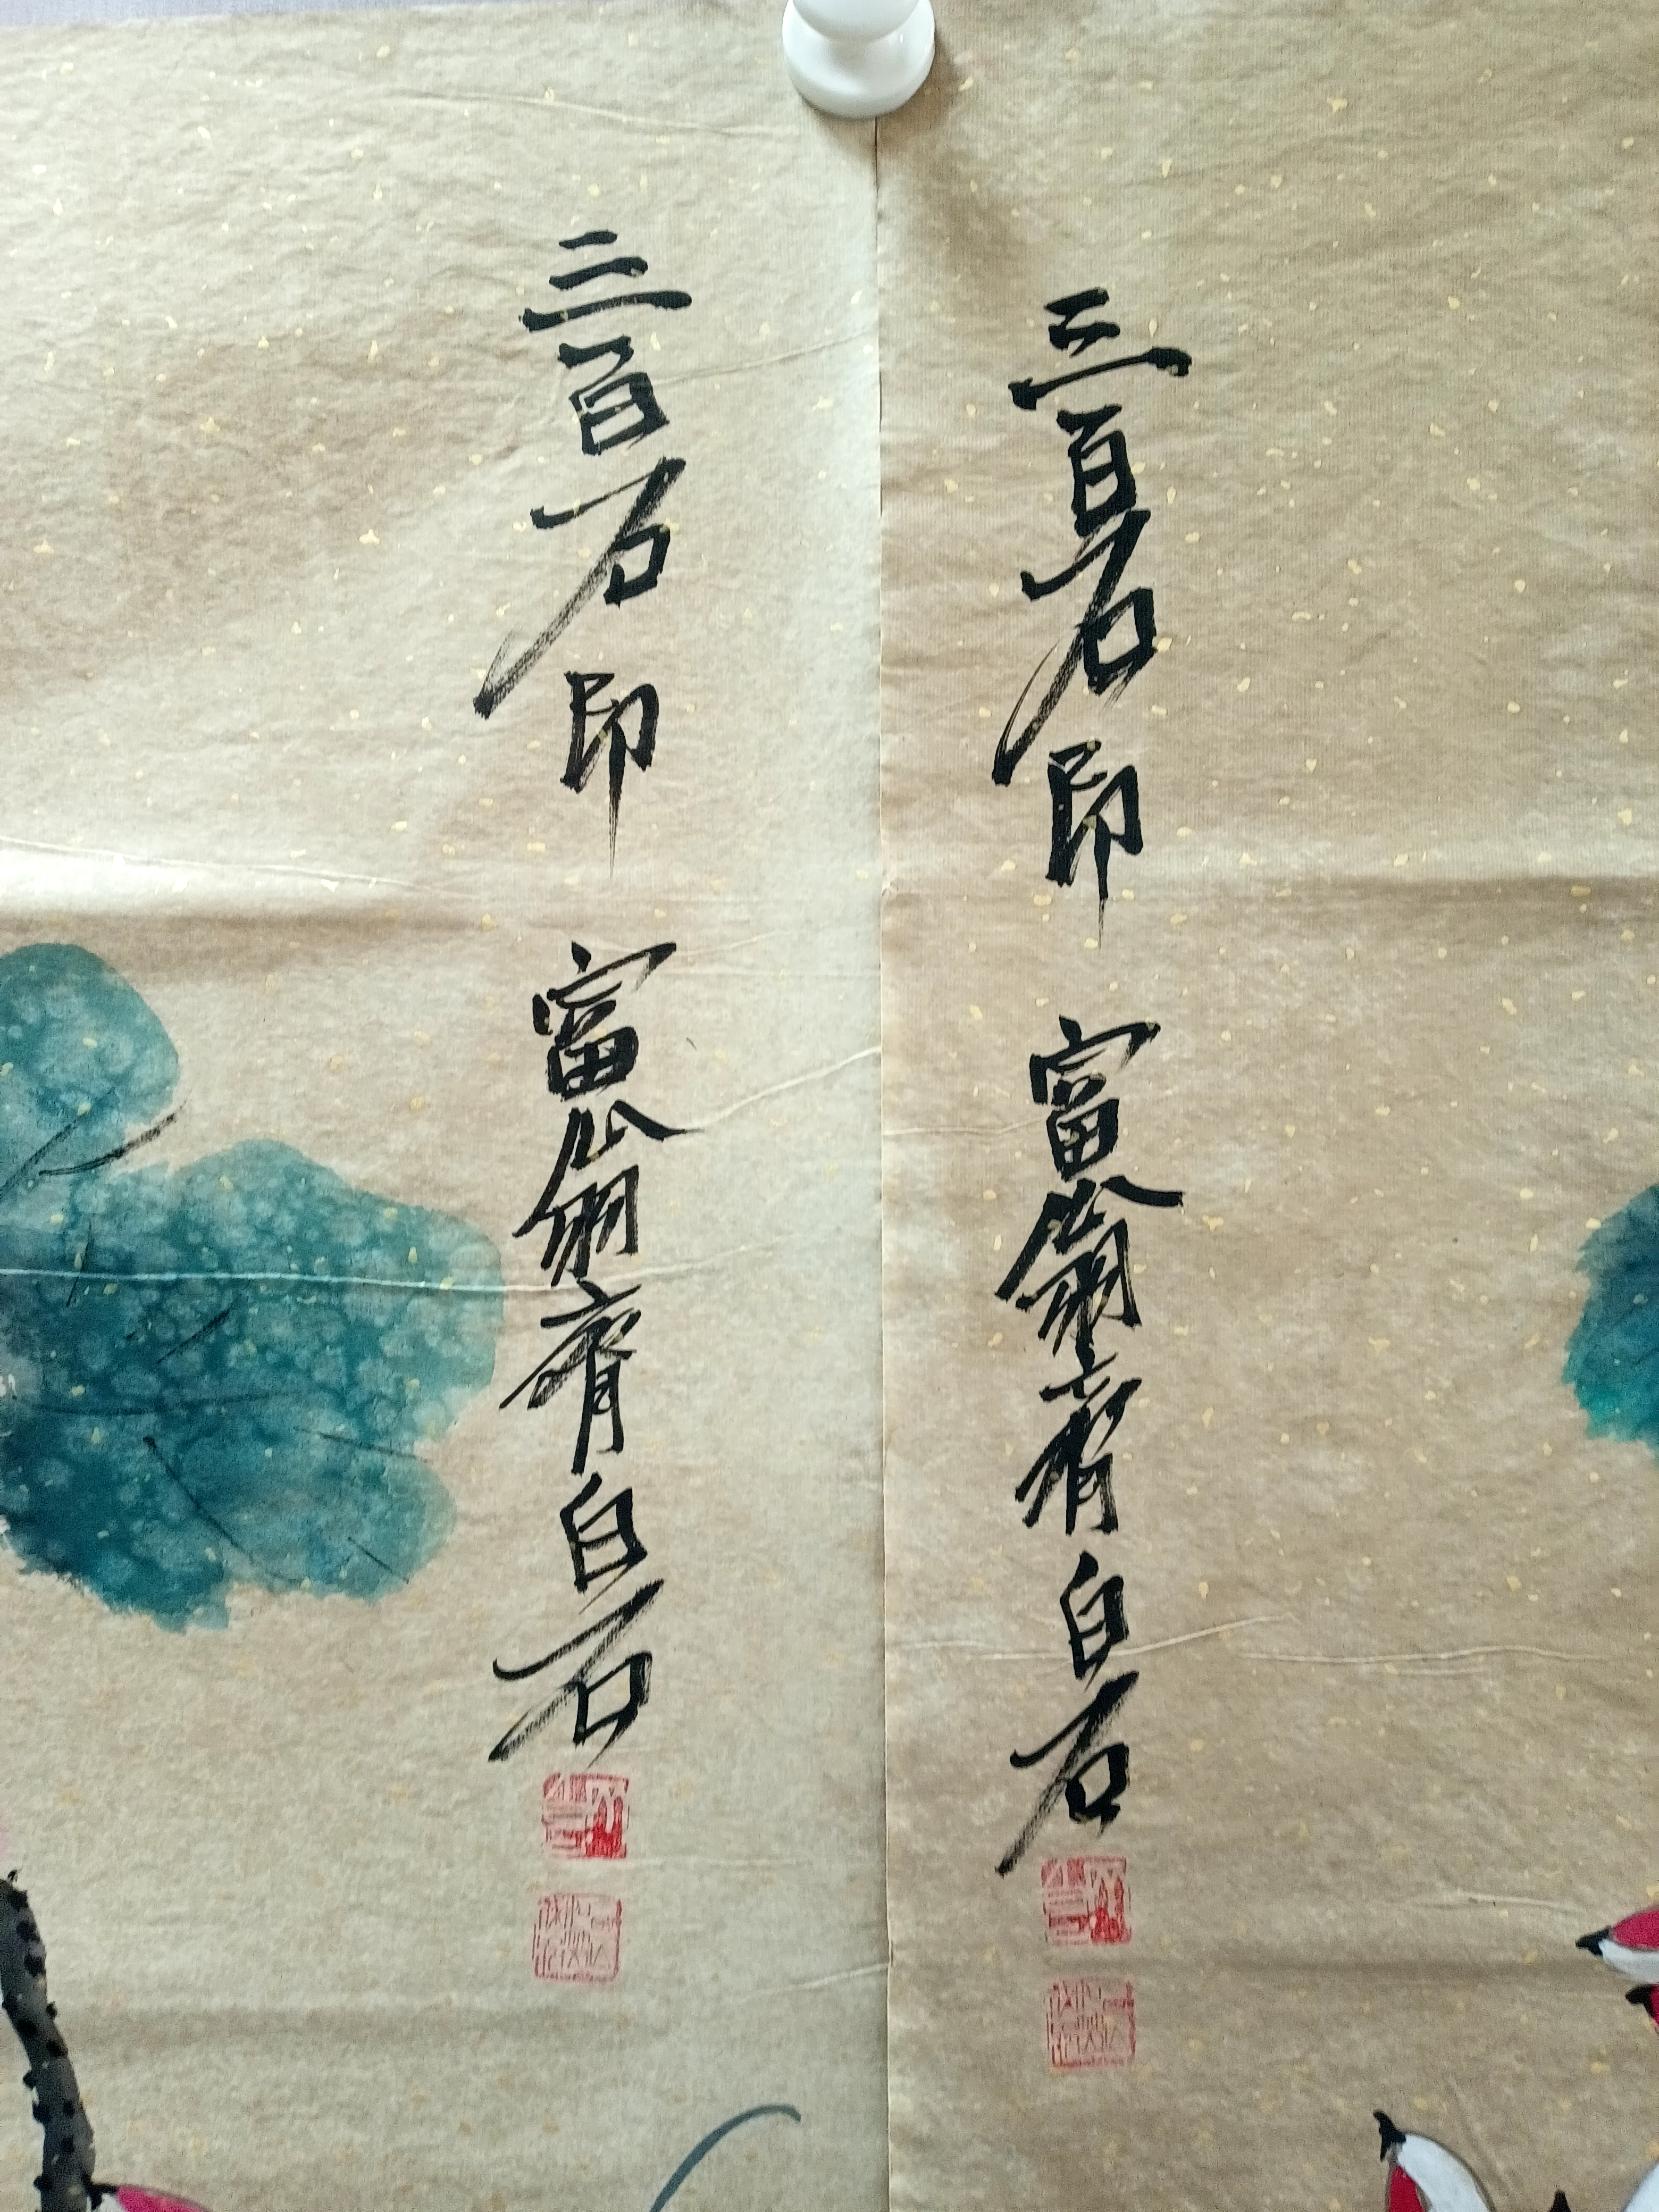 三百石印富翁齊白石
三百石印富翁齊白石